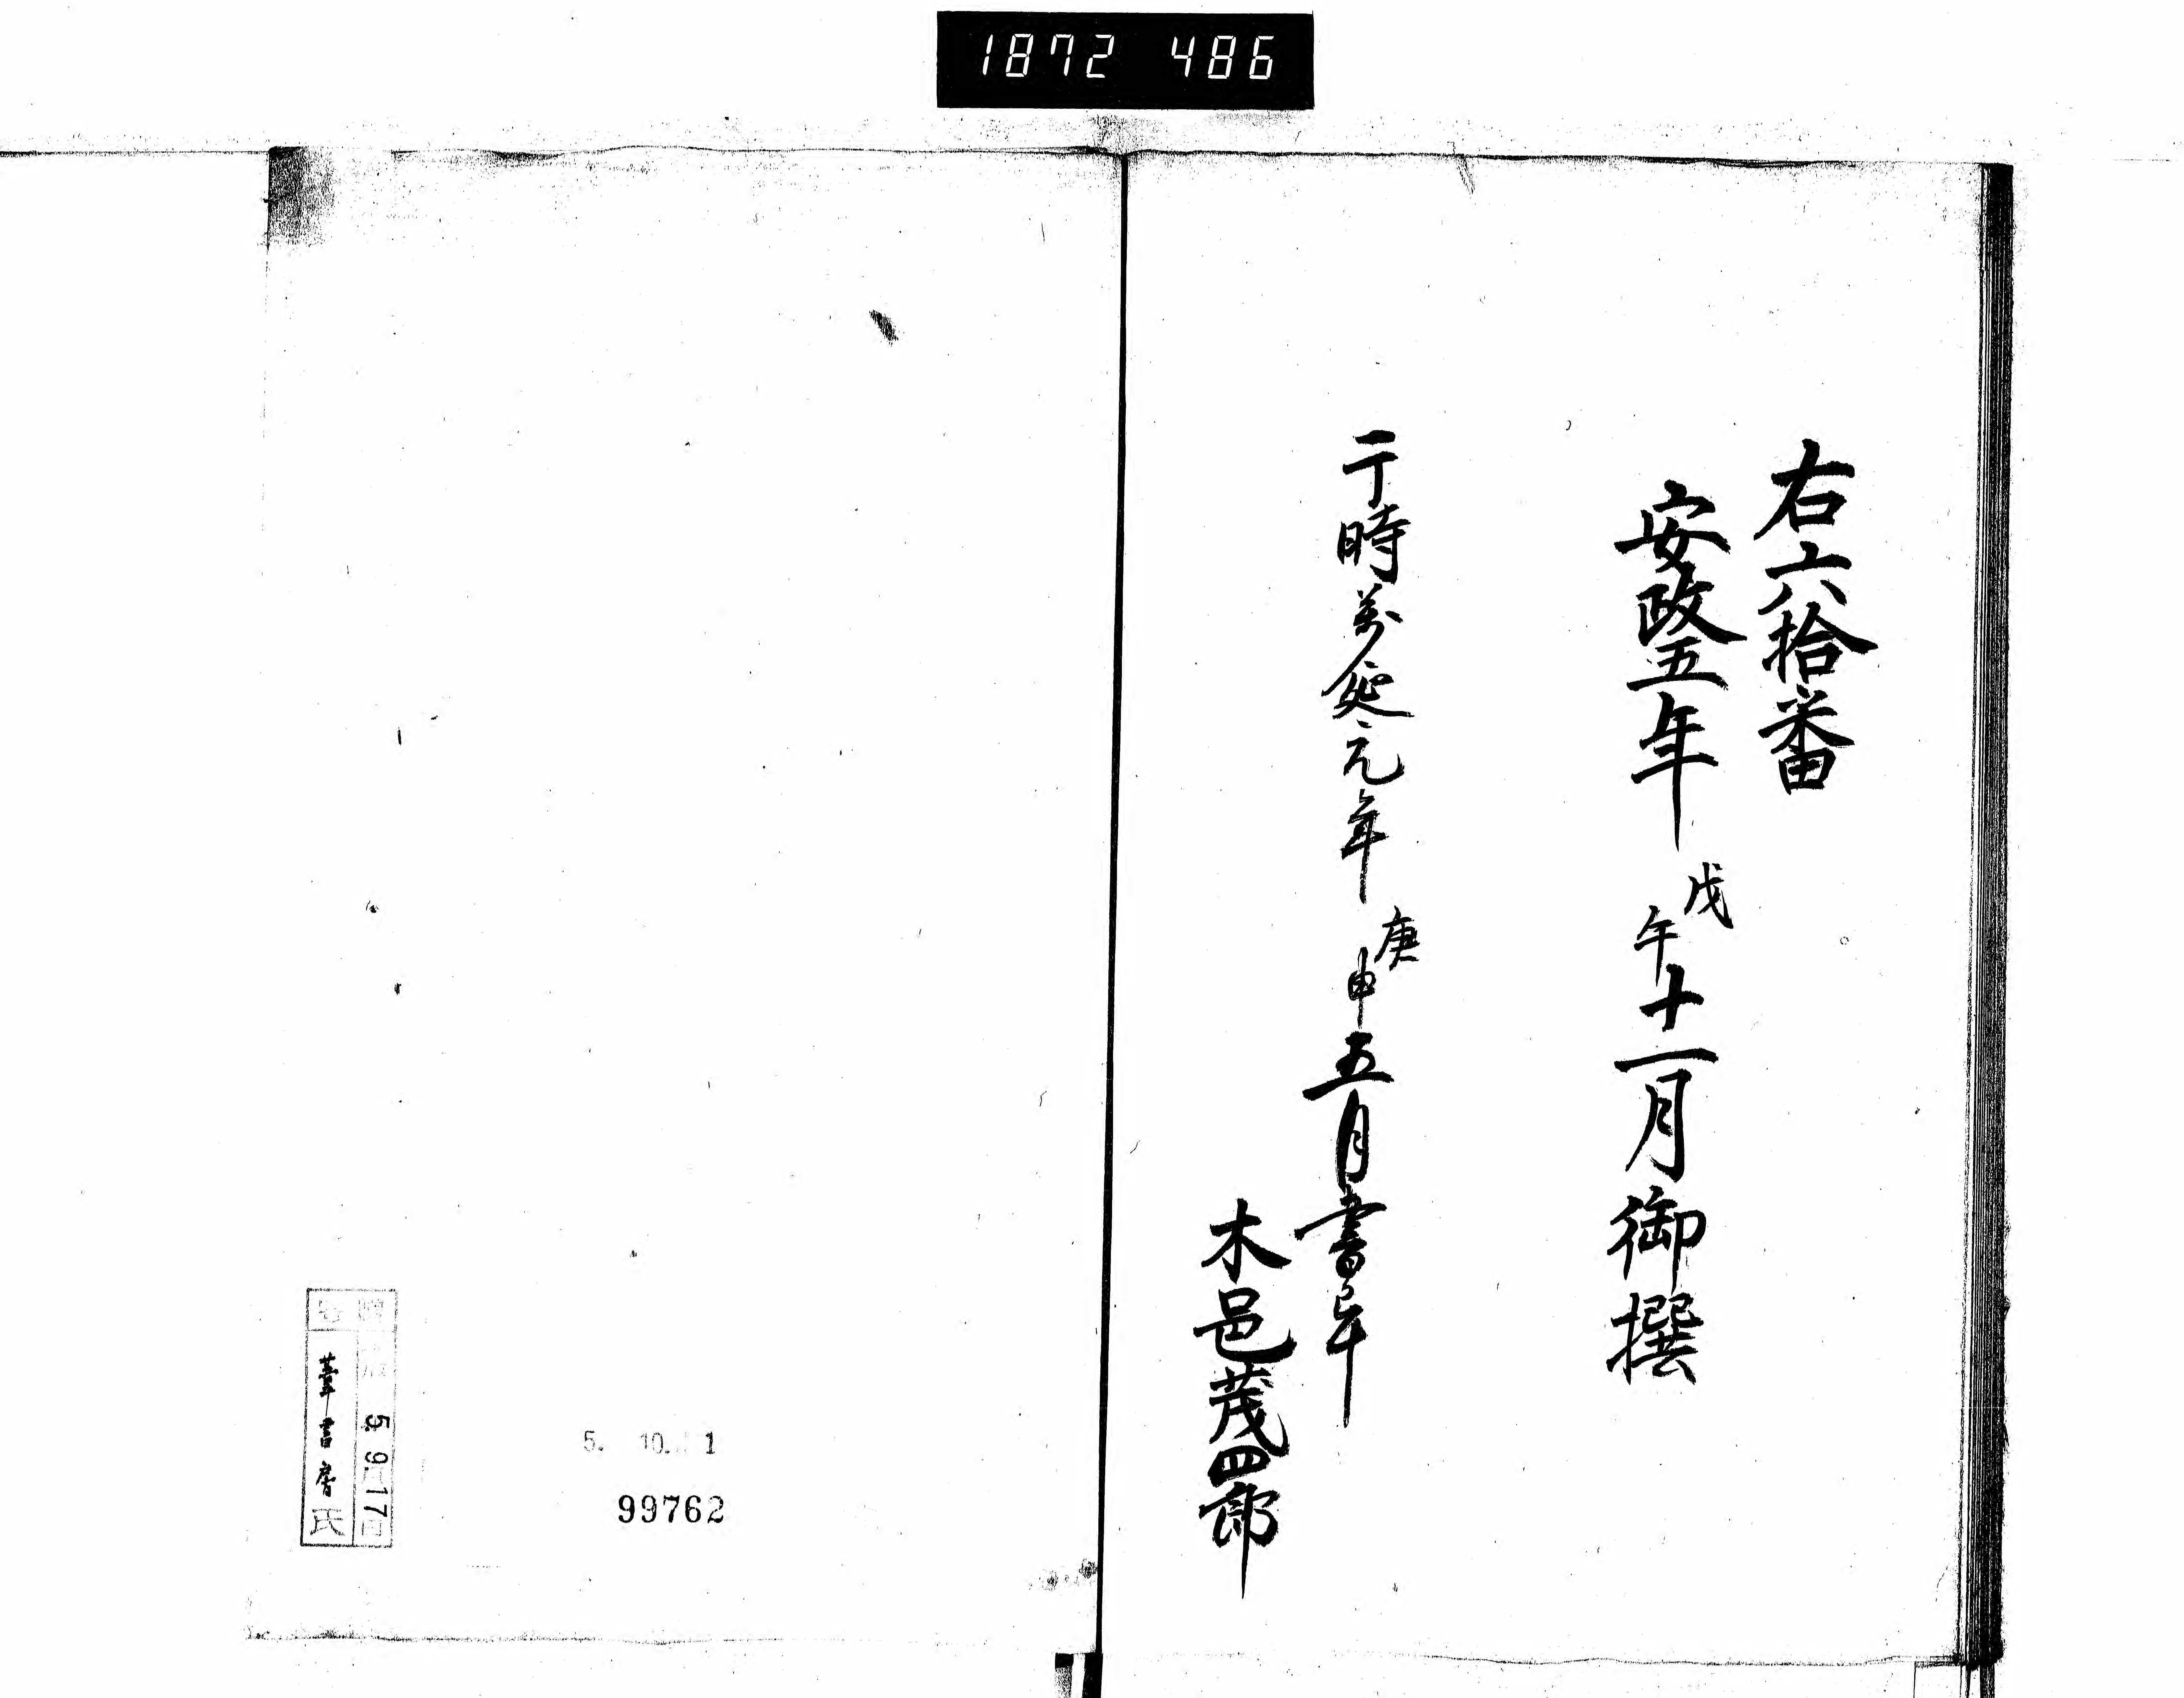 1872 486
右六拾番
安政五年戊午十一月御撰
于時万延元年庚申五月書写
木邑茂四郎
5. 9. 17
書房
5. 10. 1
99762